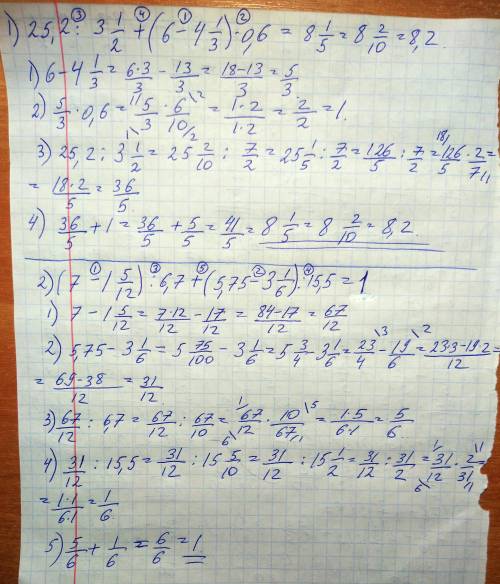 1) 25,2 : 3 1/2 + (6 - 4 1/3) · 0,6 = 8 1/5 = 8 2/10 = 8,2.
1) 6 - 4 1/3 = 6·3/3 - 13/3 = 18-13/3 = 5/3.
2) 5/3 · 0,6 = 5/3 · 6/10 = 1·2/1·2 = 2/2 = 1.
3) 25,2 : 3 1/2 = 25 2/10 : 7/2 = 25 1/5 : 7/2 = 126/5 : 7/2 = 126/5 · 2/7 =
= 18·2/5 = 36/5
4) 36/5 + 1 = 36/5 + 5/5 = 41/5 = 8 1/5 = 8 2/10 = 8,2.
2) (7 - 1 5/12) : 6,7 + (5,75 - 3 1/6) : 15,5 = 1
1) 7 - 1 5/12 = 7·12/12 - 17/12 = 84-17/12 = 67/12
2) 5,75 - 3 1/6 = 5 75/100 - 3 1/6 = 5 3/4 - 3 1/6 = 23/4 - 19/6 = 23·3-19·2/12 =
= 69-38/12 = 31/12
3) 67/12 : 6,7 = 67/12 : 67/10 = 67/12 · 10/67 = 1·5/6·1 = 5/6
4) 31/12 : 15,5 = 31/12 : 15 5/10 = 31/12 : 15 1/2 = 31/12 : 31/2 = 31/12 · 2/31 =
= 1·1/6·1 = 1/6
5) 5/6 + 1/6 = 6/6 = 1